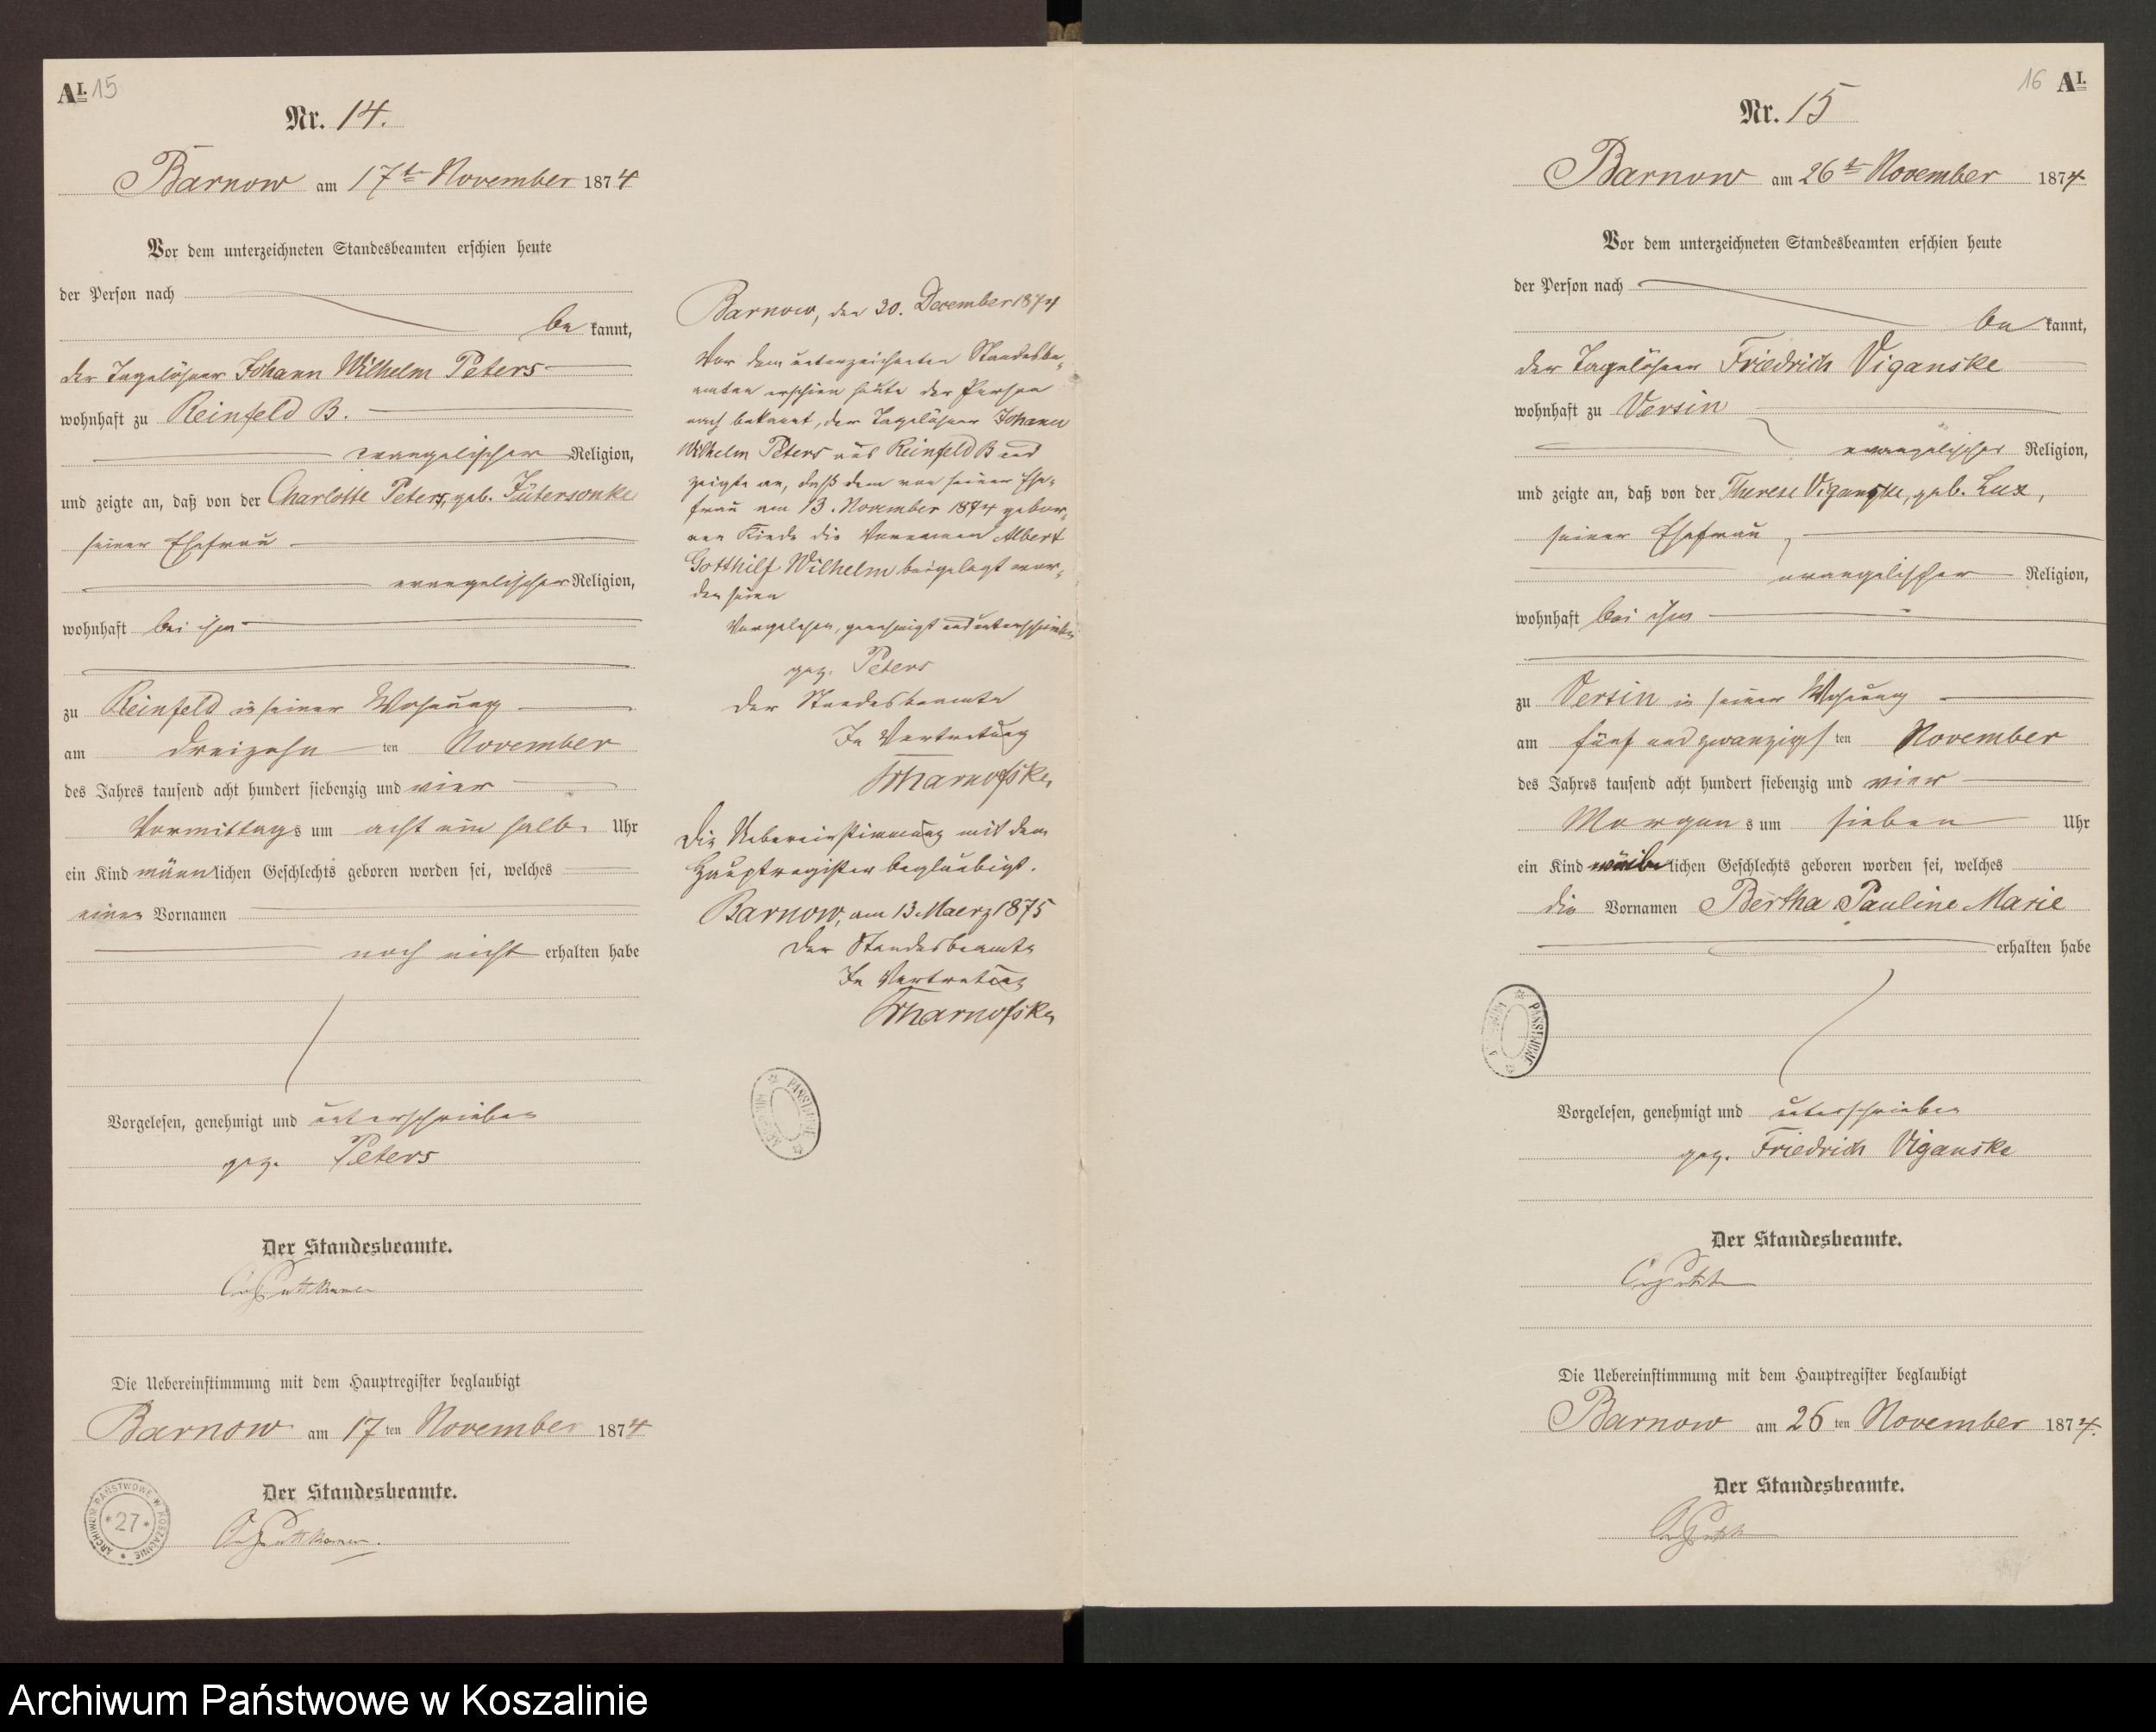 AI. 15
Nr. 14.
Barnow am 17ten November 1874
Vor dem unterzeichneten Standesbeamten erschien heute
der Person nach
be kannt,
der Tagelöhner Johann Wilhelm Peters
wohnhaft zu Reinfeld B.
evangelischer Religion,
und zeigte an, daß von der Charlotte Peters, geb. Jütersonke
seiner Ehefrau
evangelischer Religion,
wohnhaft bei ihm
zu Reinfeld in seiner Wohnung
am dreizehn ten November
des Jahres tausend acht hundert siebenzig und vier
Vormittags um acht ein halb Uhr
ein Kind männlichen Geschlechts geboren worden sei, welches
einen Vornamen
noch nicht erhalten habe
Vorgelesen, genehmigt und unterschrieben
gez. Peters
Der Standesbeamte.
Die Uebereinstimmung mit dem Hauptregister beglaubigt
Barnow am 17 ten November 1874
Der Standesbeamte.
ARCHIWUM PAŃSTWOWE W KOSZALINIE
*27*
Barnow, den 30. December 1874
Vor dem unterzeichneten Standesbe-
amten erschien heute der Person
nach bekannt, der Tagelöhner Johann
Wilhelm Peters aus Reinfeld B und
zeigte an, daß dem von seiner Ehe-
frau am 13. November 1874 gebor-
nen Kinde die Vornamen Albert
Gotthilf Wilhelm beigelegt wor-
den seien
Vorgelesen, genehmigt und unterschrieben
gez. Peters
Der Standesbeamte
In Vertretung
Die Uebereinstimmung mit dem
Hauptregister beglaubigt.
Barnow, am 13. Maerz 1875
Der Standesbeamte
In Vertretung
ARCHIWUM PAŃSTWOWE
16 AI.
Nr. 15
Barnow am 26ten November 1874
Vor dem unterzeichneten Standesbeamten erschien heute
der Person nach
be kannt,
der Tagelöhner Friedrich Viganske
wohnhaft zu Versin
evangelischer Religion,
und zeigte an, daß von der Therese Viganske, geb. Lux,
seiner Ehefrau,
evangelischer Religion,
wohnhaft bei ihm
zu Versin in seiner Wohnung
am fünf und zwanzigs ten November
des Jahres tausend acht hundert siebenzig und vier
Morgens um sieben Uhr
ein Kind weiblichen Geschlechts geboren worden sei, welches
die Vornamen Bertha Pauline Marie
erhalten habe
ARCHIWUM PAŃSTWOWE
Vorgelesen, genehmigt und unterschrieben
gez. Friedrich Viganske
Der Standesbeamte.
Die Uebereinstimmung mit dem Hauptregister beglaubigt
Barnow am 26 ten November 1874.
Der Standesbeamte.
Archiwum Państwowe w Koszalinie